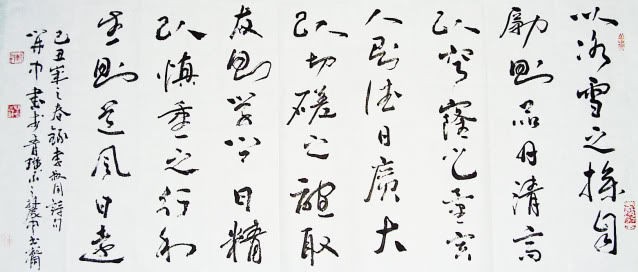 以冰雪之操自
励则品日清高
以穹窿之量容
人则德日廣大
以切磋之誼取
友则学问日精
以慎重之行利
生则道风日遠
己丑年之春錄李叔同詩句